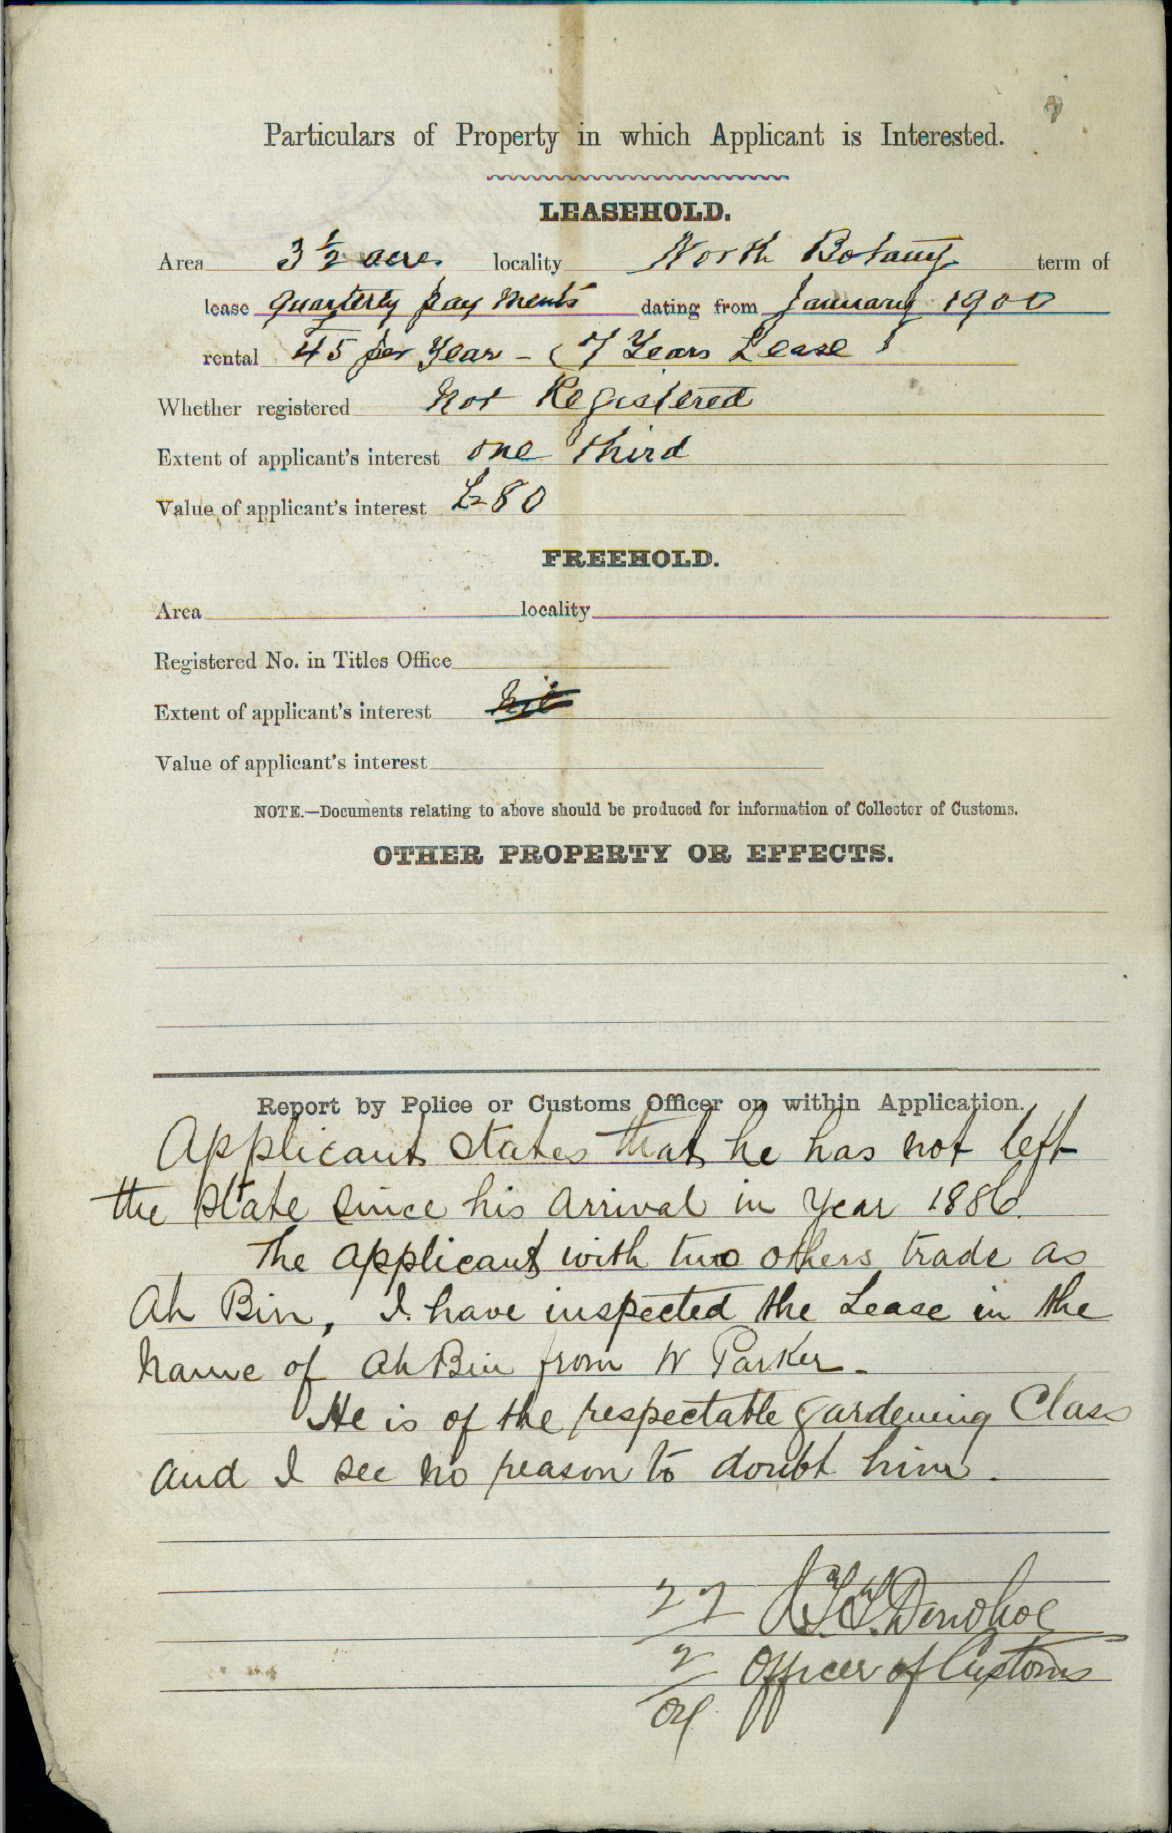 Particulars of Property in which Applicant is Interested.
LEASEHOLD.
Area 3 ½ acre locality North Botany term of
lease Quarterly payments dating from January 1900
rental 45 per Year - (7 Years Lease)
Whether registered Not Registered
Extent of applicant's interest one third
Value of applicant's interest £80
FREEHOLD.
Area locality
Registered No. in Titles Office
Extent of applicant's interest nil
Value of applicant's interest
NOTE.—Documents relating to above should be produced for information of Collector of Customs.
OTHER PROPERTY OR EFFECTS.
Report by Police or Customs Officer on within Application.
Applicant states that he has not left
the State since his arrival in year 1886.
The applicant with two others trade as
Ah Bin, I have inspected the Lease in the
name of Ah Bin from W Parker.
He is of the respectable gardening Class
and I see no reason to doubt him.
27 Donohoe
2 Officer of Customs
04